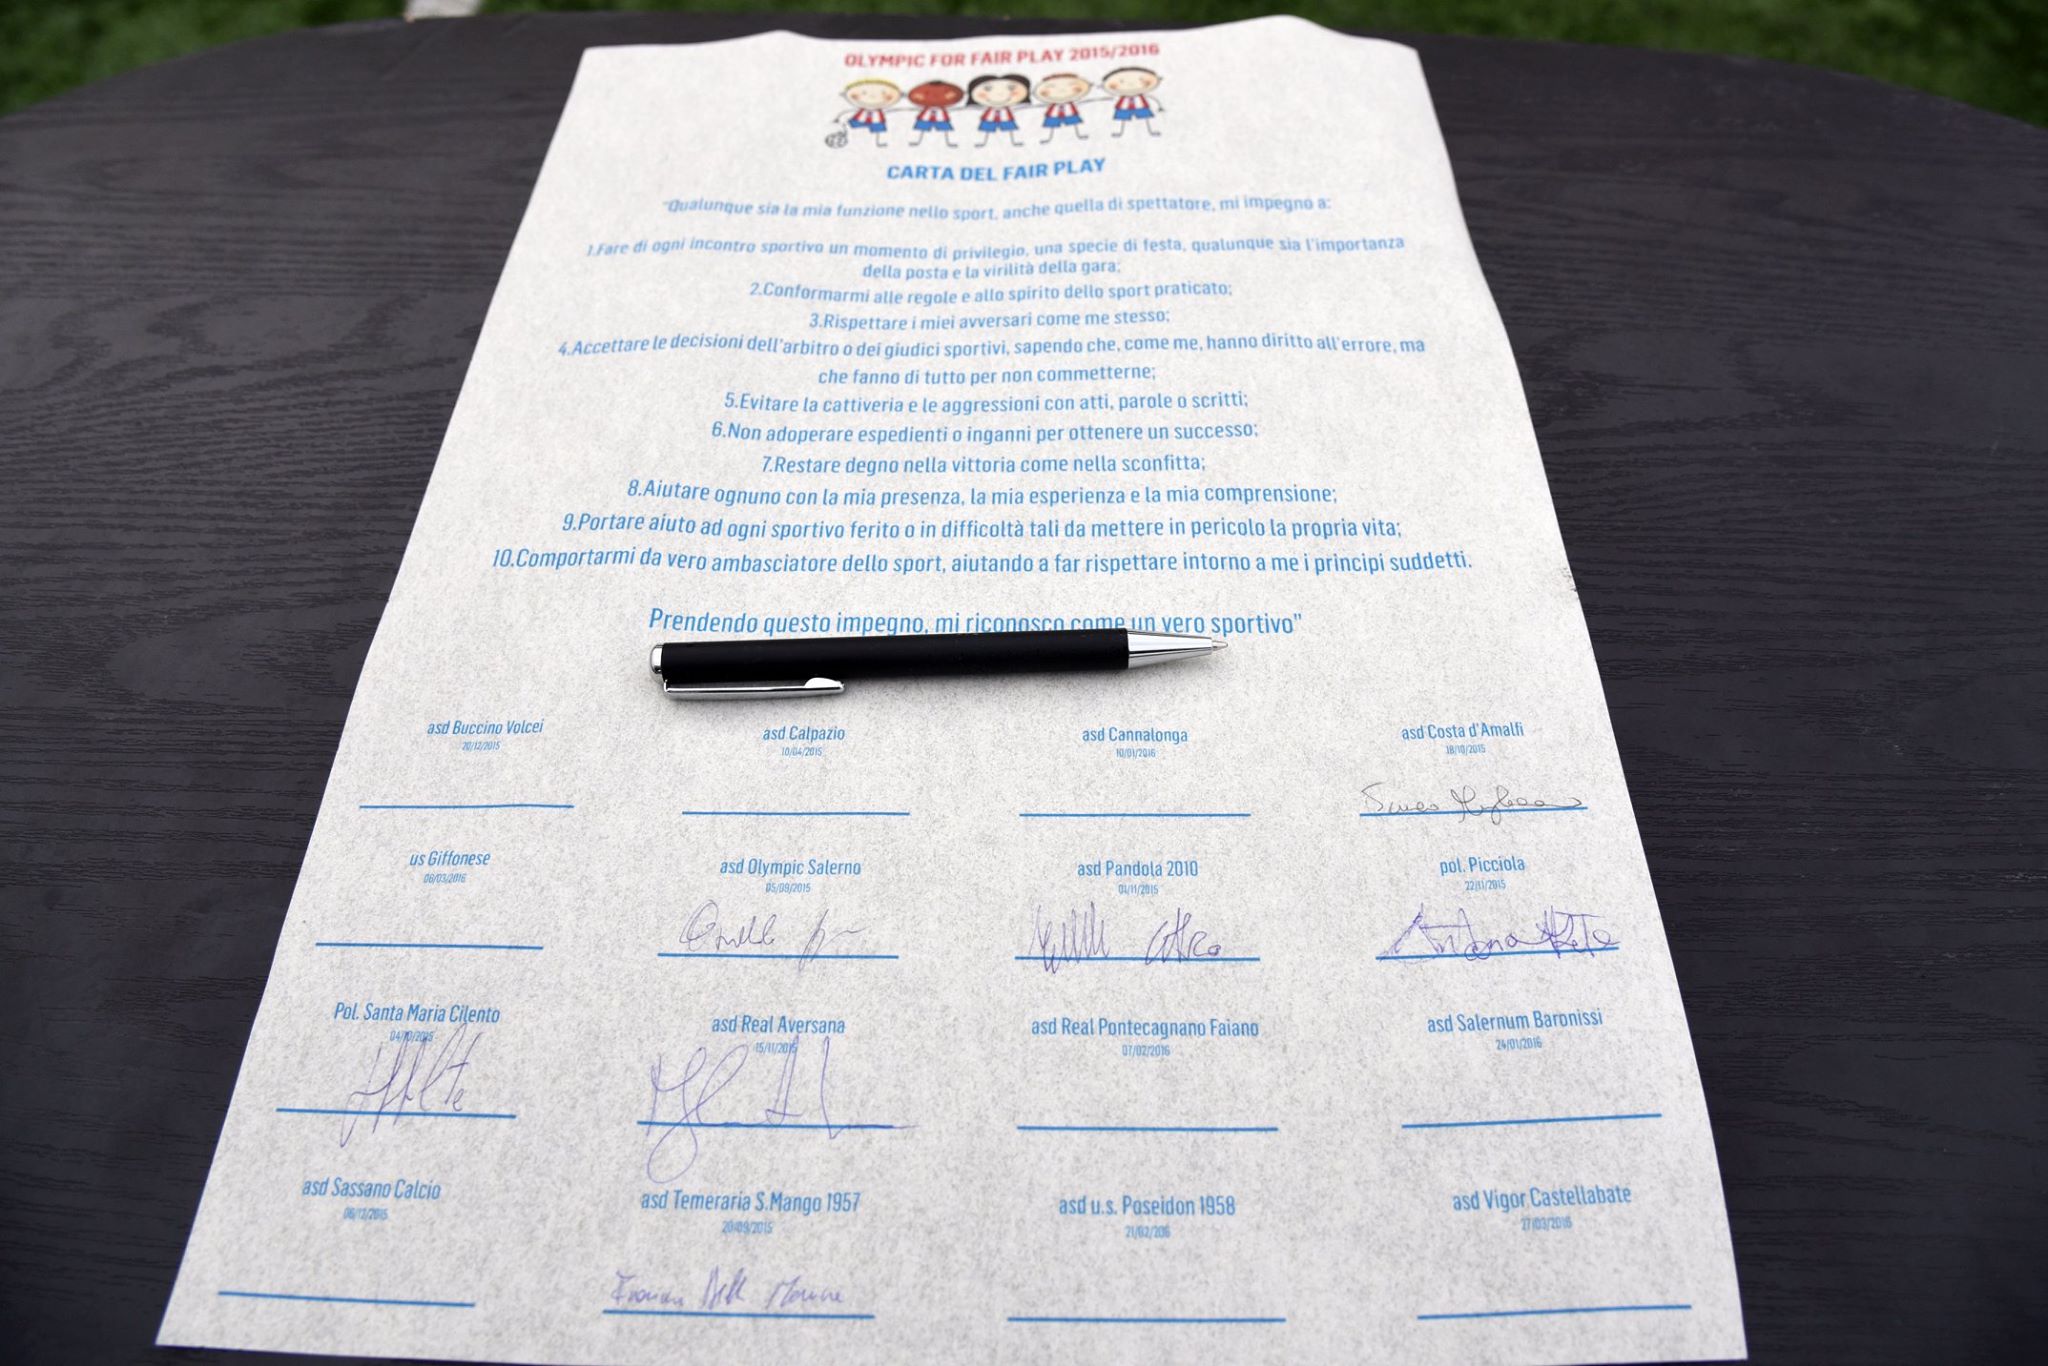 OLYMPIC FOR FAIR PLAY 2015/2016
CARTA DEL FAIR PLAY
"Qualunque sia la mia funzione nello sport, anche quella di spettatore, mi impegno a:
1.Fare di ogni incontro sportivo un momento di privilegio, una specie di festa, qualunque sia l'importanza
della posta e la virilità della gara;
2.Conformarmi alle regole e allo spirito dello sport praticato;
3.Rispettare i miei avversari come me stesso;
4.Accettare le decisioni dell'arbitro o dei giudici sportivi, sapendo che, come me, hanno diritto all'errore, ma
che fanno di tutto per non commetterne;
5.Evitare la cattiveria e le aggressioni con atti, parole o scritti;
6.Non adoperare espedienti o inganni per ottenere un successo;
7.Restare degno nella vittoria come nella sconfitta;
8.Aiutare ognuno con la mia presenza, la mia esperienza e la mia comprensione;
9.Portare aiuto ad ogni sportivo ferito o in difficoltà tali da mettere in pericolo la propria vita;
10.Comportarmi da vero ambasciatore dello sport, aiutando a far rispettare intorno a me i principi suddetti.
Prendendo questo impegno, mi riconosco come un vero sportivo"
asd Buccino Volcei asd Calpazio asd Cannalonga asd Costa d'Amalfi
20/12/2015 10/04/2015 10/01/2016 18/10/2015
us Giffonese asd Olympic Salerno asd Pandola 2010 pol. Picciola
06/03/2016 05/09/2015 01/11/2015 22/11/2015
Pol. Santa Maria Cilento asd Real Aversana asd Real Pontecagnano Faiano asd Salernum Baronissi
04/10/2015 15/11/2015 07/02/2016 24/01/2016
asd Sassano Calcio asd Temeraria S.Mango 1957 asd u.s. Poseidon 1958 asd Vigor Castellabate
06/12/2015 20/09/2015 21/02/206 27/03/2016